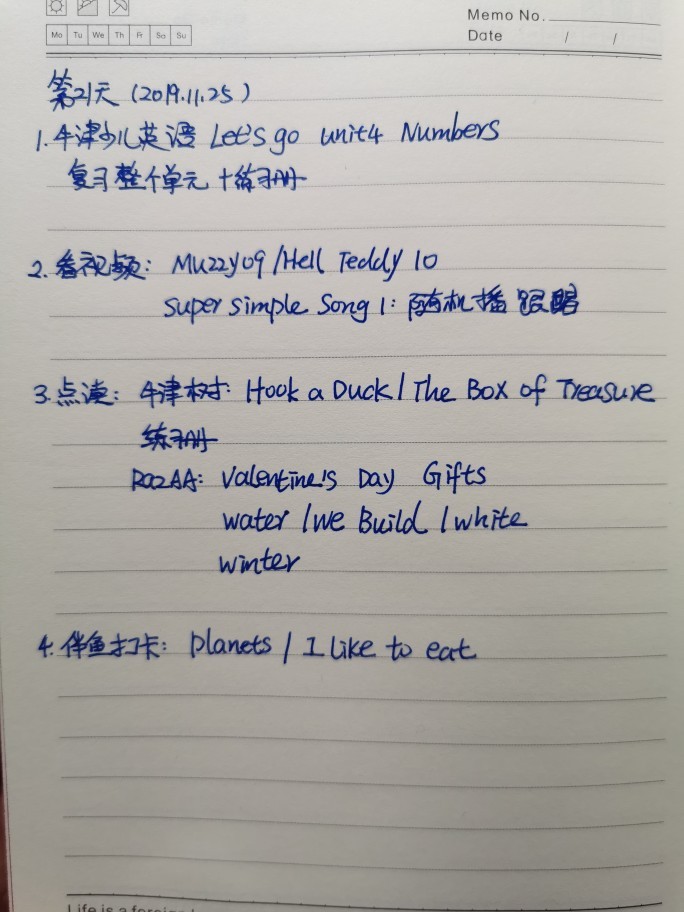 Memo No.
Mo Tu We Th Fr Sa Su
Date / /
第21天 (2019.11.25)
1. 牛津少儿英语 Let's go unit4 Numbers
复习整个单元+练习册
2. 看视频: Muzzy09/Hell Teddy 10
super simple Song 1: 随机播
3. 点读: 牛津树: Hook a Duck/The Box of Treasure
练习册
RazAA: Valentine's Day Gifts
water/we Build/white
winter
4. 伴鱼打卡: planets/I like to eat
Life is a